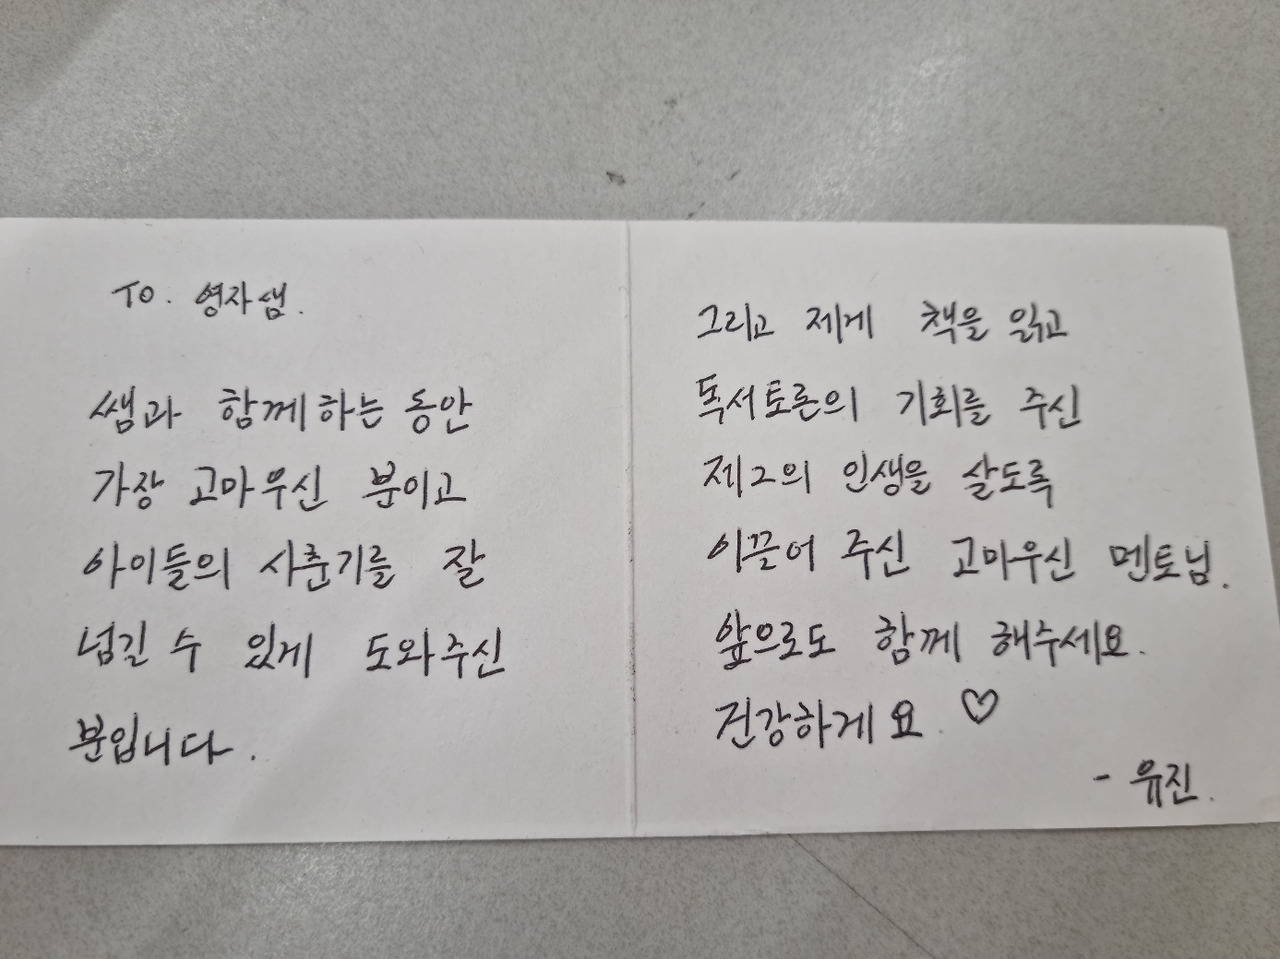 TO. 영자샘.
쌤과 함께하는 동안
가장 고마우신 분이고
아이들의 사춘기를 잘
넘길 수 있게 도와주신
분입니다.
그리고 제게 책을 읽고
독서토론의 기회를 주신
제2의 인생을 살도록
이끌어 주신 고마우신 멘토님.
앞으로도 함께 해주세요.
건강하게요. ♡
- 유진.